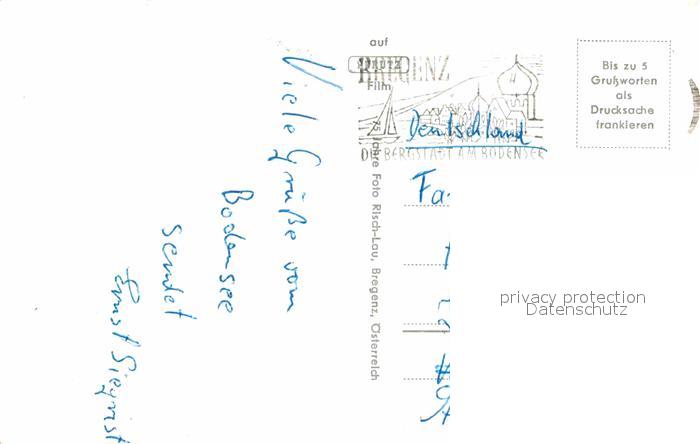 Viele Grüße vom
Bodensee
sendet
Ernst Siegrist
auf
Film
Jahre Foto Risch-Lau, Bregenz, Österreich
BREGENZ
DIE BERGSTADT AM BODENSEE
Deutschland
Fa.
Bis zu 5
Grußworten
als
Drucksache
frankieren
privacy protection
Datenschutz